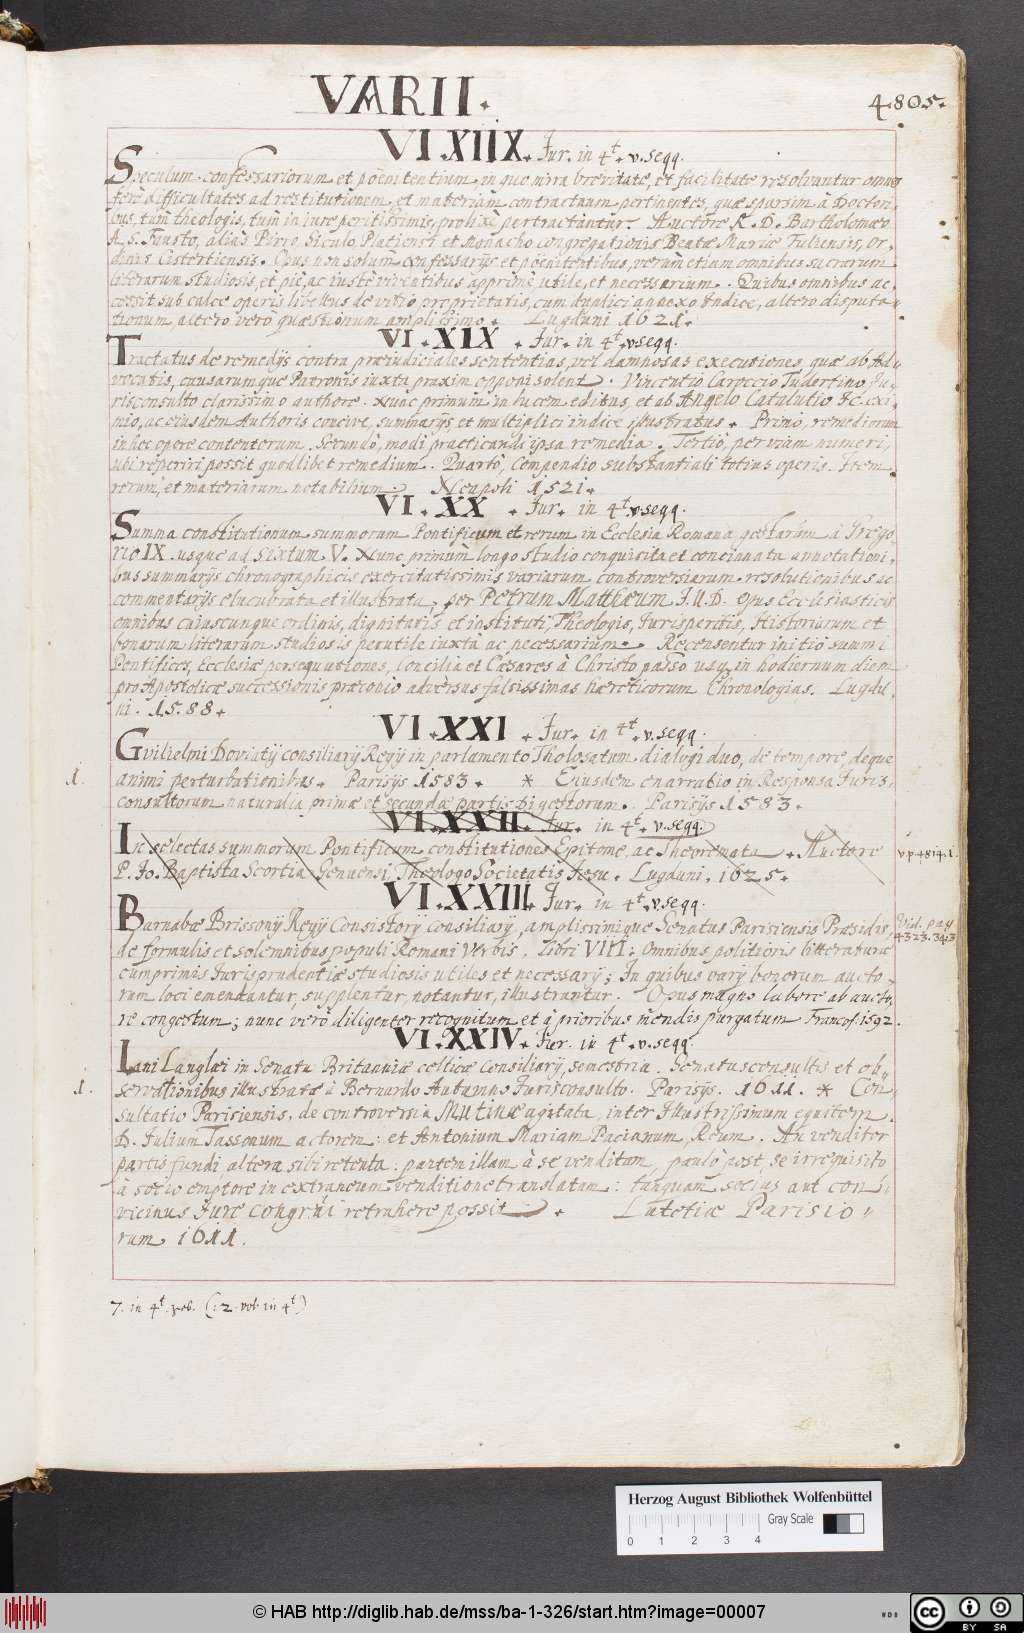 VARII.
4805.
VI.XIIX. Jur. in 4t. v.seqq.
Speculum confessariorum et poenitentium, in quo mira brevitate, et facilitate resolvuntur omnes
ferè difficultates ad restitutionem, et materiam contractuum pertinentes, quae sparsim à Doctori-
bus, tum theologis, tum in iure peritissimis, prolixè pertractantur. Auctore R. D. Bartholomaeo
A. S. Fausto, aliàs Pirro, Siculo, Platiensi et Monacho congregationis Beatae Mariae Fuliensis, or-
dinis Cistertiensis. Opus non solum confessarijs et poenitentibus, verùm etiam omnibus sacrarum
literarum studiosis, et pie, ac iuste viventibus apprimè utile, et necessarium. Quibus omnibus ac-
cessit sub calce operis libellus de vitio proprietatis, cum duplici annexo Indice, altero disputa-
tionum, altero verò quaestionum amplissimo. Lugduni 1621.
VI.XIX. Jur. in 4t. v.seqq.
Tractatus de remedijs contra praeiudiciales sententias, vel damnosas executiones, quae ab Ad-
vocatis, causarumque Patronis iuxta praxim opponi solent. Vincentio Caroccio Tudertino Ju-
risconsulto clarissimo authore. Nunc primum in lucem editus, et ab Angelo Catalutio &c.
nio, ac eiusdem Authoris concive, summarijs et multiplici indice illustratus. Primo, remediorum
in hoc opere contentorum. Secundò, modi practicandi ipsa remedia. Tertiò, per viam numeri,
ubi reperiri possit quodlibet remedium. Quartò, Compendio substantiali totius operis. Item
rerum, et materiarum notabilium. Neapoli 1521.
VI.XX. Jur. in 4t. v.seqq.
Summa constitutionum summorum Pontificum et rerum in Ecclesia Romana gestarum à Grego-
rio IX. usque ad Sixtum V. Nunc primùm longo studio conquisita et concinnata annotationi-
bus summarijs chronographicis exercitatissimis variarum controversiarum resolutionibus ac
commentarijs elucubrata et illustrata; per Petrum Matthaeum J.U.D. opus Ecclesiasticis
omnibus cuiuscunque ordinis, dignitatis et instituti, Theologis, Jurisperitis, Historiarum et
bonarum literarum studiosis perutile iuxtà ac necessarium. Recensentur initio summi
Pontifices, Ecclesiae persequutiones, Concilia et Caesares à Christo passo usq. in hodiernum diem
pro Apostolicae successionis praeconio adversus falsissimas haereticorum Chronologias. Lugdu-
ni. 1588.
VI.XXI. Jur. in 4t. v.seqq.
Gvilielmi Dovintij consiliarij Regij in parlamento Tholosatum dialogi duo, de tempore, deque
1. animi perturbationibus. Parisijs 1583. * Eiusdem enarratio in Responsa Juris-
consultorum naturalia primae et secundae partis Digestorum. Parisijs 1583.
VI.XXII. Jur. in 4t. v.seqq.
In selectas summorum Pontificum constitutiones Epitome, ac Theoremata. Auctore
v.p. 4814.1.
P. Jo. Baptista Scortia Genuensi, Theologo Societatis Jesu. Lugduni. 1625.
VI.XXIII. Jur. in 4t. v.seqq.
Barnabae Brissonij Regij Consistorij consiliarij, amplissimique Senatus Parisiensis Praesidis,
Vid. pag
4323. 3423
de formulis et solemnibus populi Romani verbis. Libri VIII: Omnibus politioris litteraturae
cumprimis Jurisprudentiae studiosis utiles et necessarij; In quibus varij bonorum aucto-
rum loci emendantur, supplentur, notantur, illustrantur. Opus magno labore ab aucto-
re congestum; nunc verò diligenter recognitum et à prioribus mendis purgatum Francof. 1592.
VI.XXIV. Jur. in 4t. v.seqq.
Iani Langlaei in Senatu Britanniae celticae Consiliarij, semestria. Senatusconsultis et ob-
1. servationibus illustratae à Bernardo Autumno Jurisconsulto. Parisijs. 1611. * Con-
sultatio Parisiensis, de controversia Mutinae agitata, inter Illustrissimum equitem
D. Julium Tassonum actorem: et Antonium Mariam Pacianum, Reum. An venditor
partis fundi, altera sibi retenta: partem illam à se venditam, paulò post, se irrequisito
à socio emptore in extraneum venditione translatam: tanquam socius aut con-
vicinus Jure congrui retrahere possit. Lutetiae Parisio-
rum 1611.
7. in 4t. vol. (: 2. vol. in 4t.)
Herzog August Bibliothek Wolfenbüttel
Gray Scale
0 1 2 3 4
© HAB http://diglib.hab.de/mss/ba-1-326/start.htm?image=00007
WDB
CC BY SA